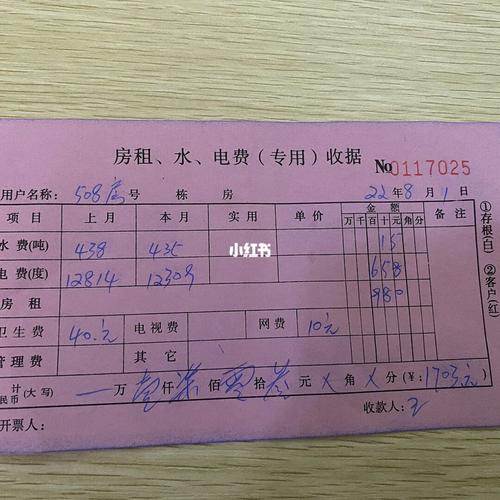 房租、水、电费(专用)收据 №0117025
用户名称: 508房号 栋 房 22年8月1日
项目 上月 本月 实用 单价 金额 备注
万千百十元角分
水费(吨) 438 435 15
电费(度) 12814 12309 658
房租 980
卫生费 40.元 电视费 网费 10元
管理费 其它
计(大写)
民币 一万壹仟柒佰零拾叁元X角X分(¥:1703元)
开票人: 收款人:王
①存根(白)
②客户(红)
小红书